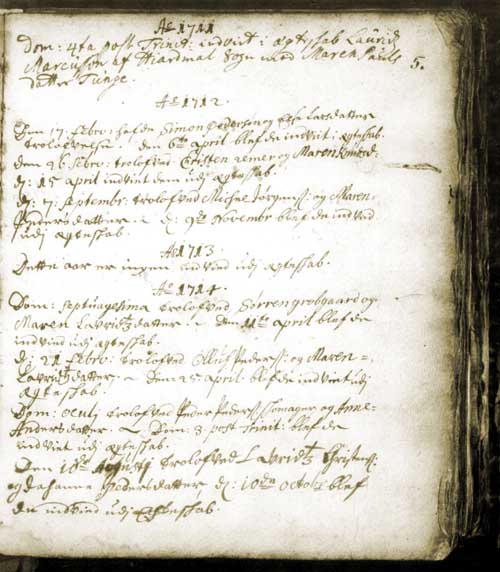 Ao 1711
Dom: 4ta post Trinit: indviet i ægteskab Laurids
Marcusøn af Hiardmal Sogn med Maren Pouls
datter Tunge.
5.
Ao 1712.
Den 17. Febr: hafde Simon Pedersøn og Else Larsdatter
trolofvelse. den 6te april blef de indviet i ægteskab.
den 26. Febr: trolofved Cristen og Maren
d: 15 april indviet dem udj ægteskab.
d: 7. septembr: trolofved Michel Jørgenss: og Maren
Andersdatter. d: 9de Novembr blef de indvied
udj ægteskab.
Ao 1713.
Dette aar er ingen indvied udj ægteskab.
Ao 1714.
Dom: septuagesima trolofved Sørren grobgaard og
Maren Lavridtzdatter. Den 11te april blef de
indvied udj ægteskab.
d: 21 Febr: trolofved Oluf Pederss: og Maren
Lavridtzdatter. Den 25 april blef de indviet udj
ægteskab.
Dom: oculj trolofved Peder og Anne
Andersdatter. Dom: 3. post Trinit: blef de
indviet udj ægteskab.
Den 18de Augustj trolofved Lavridtz Christenss:
og Johanne datter, d: 10den october blef
de indvied udj Ecteskab.